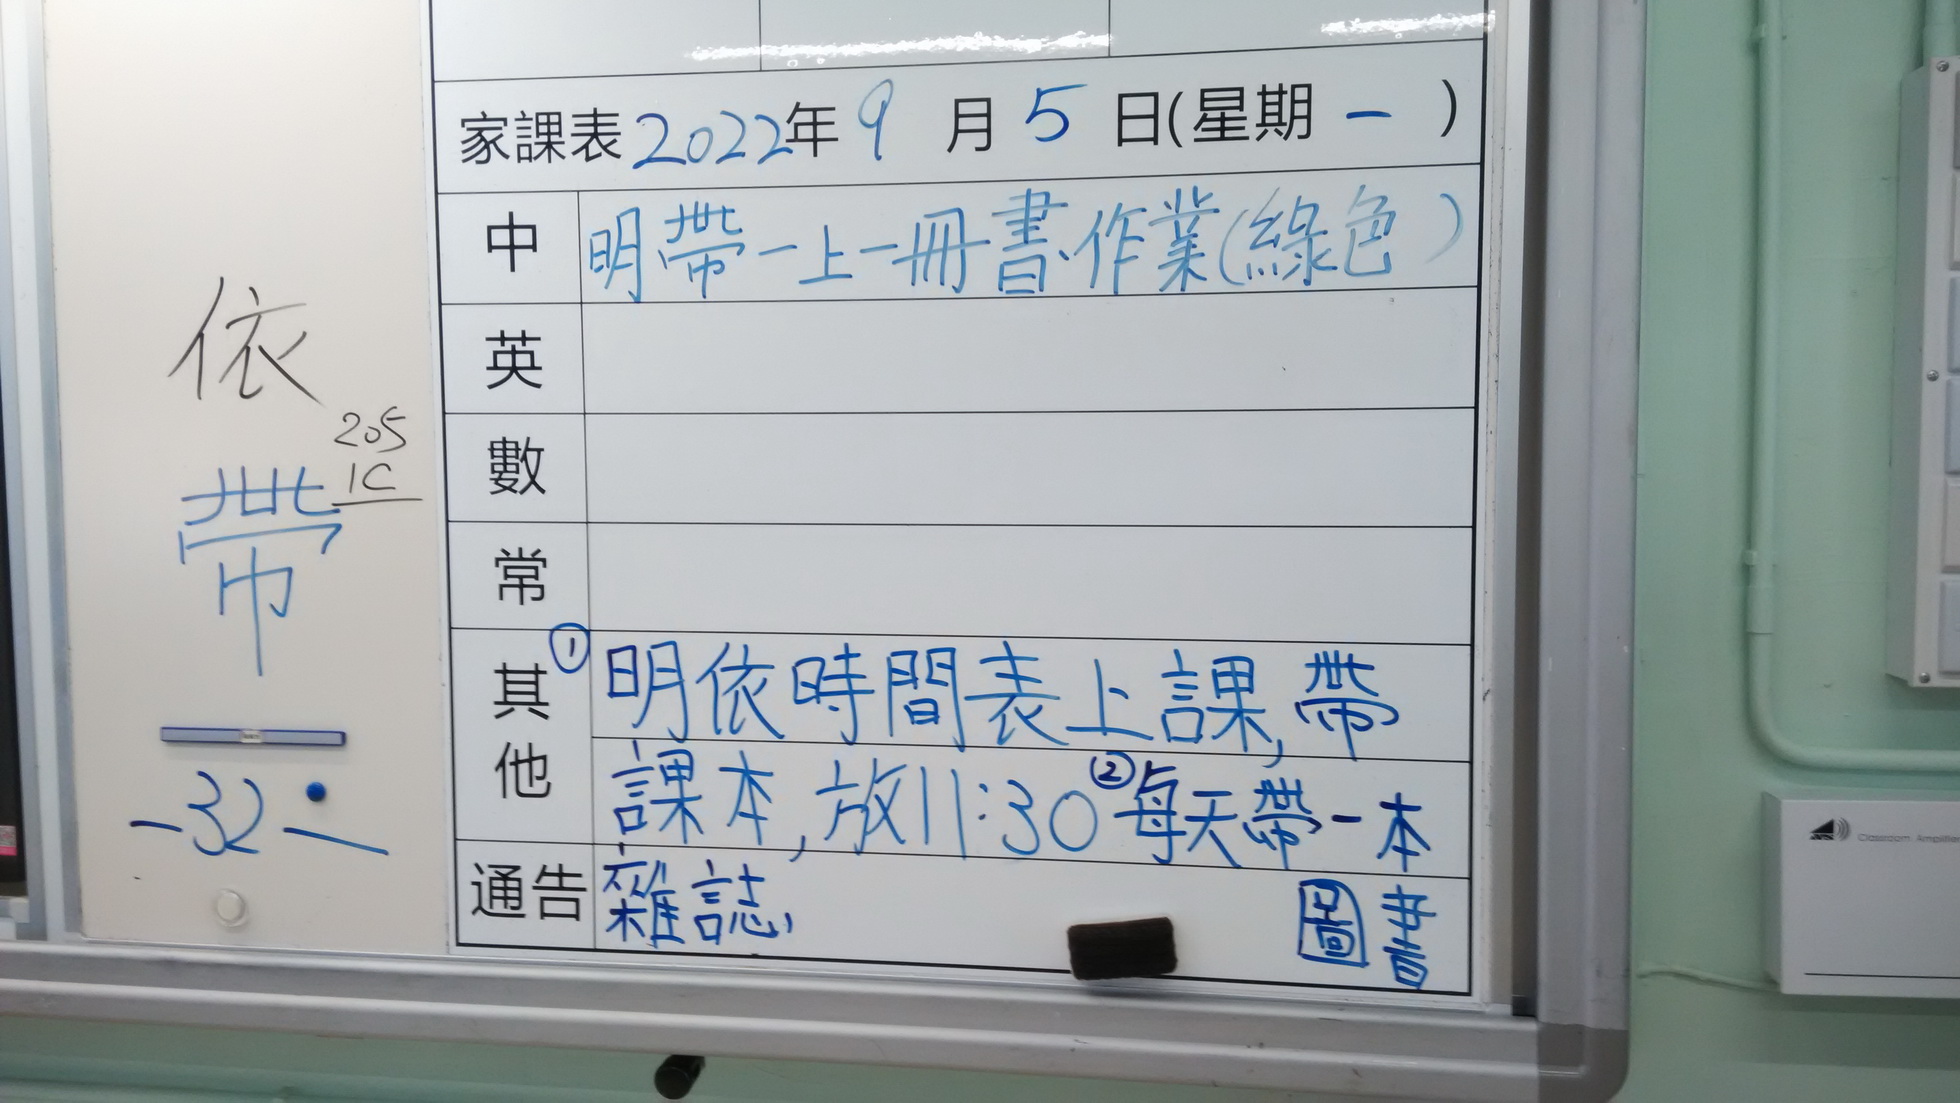 家課表2022年9月5日(星期一)
中 明帶一上一冊書、作業(綠色)
英
數
常
其他 ①明依時間表上課,帶
課本,放11:30②每天帶一本
圖書
通告 雜誌,
依
205
1C
帶
32
Classroom Amplifier